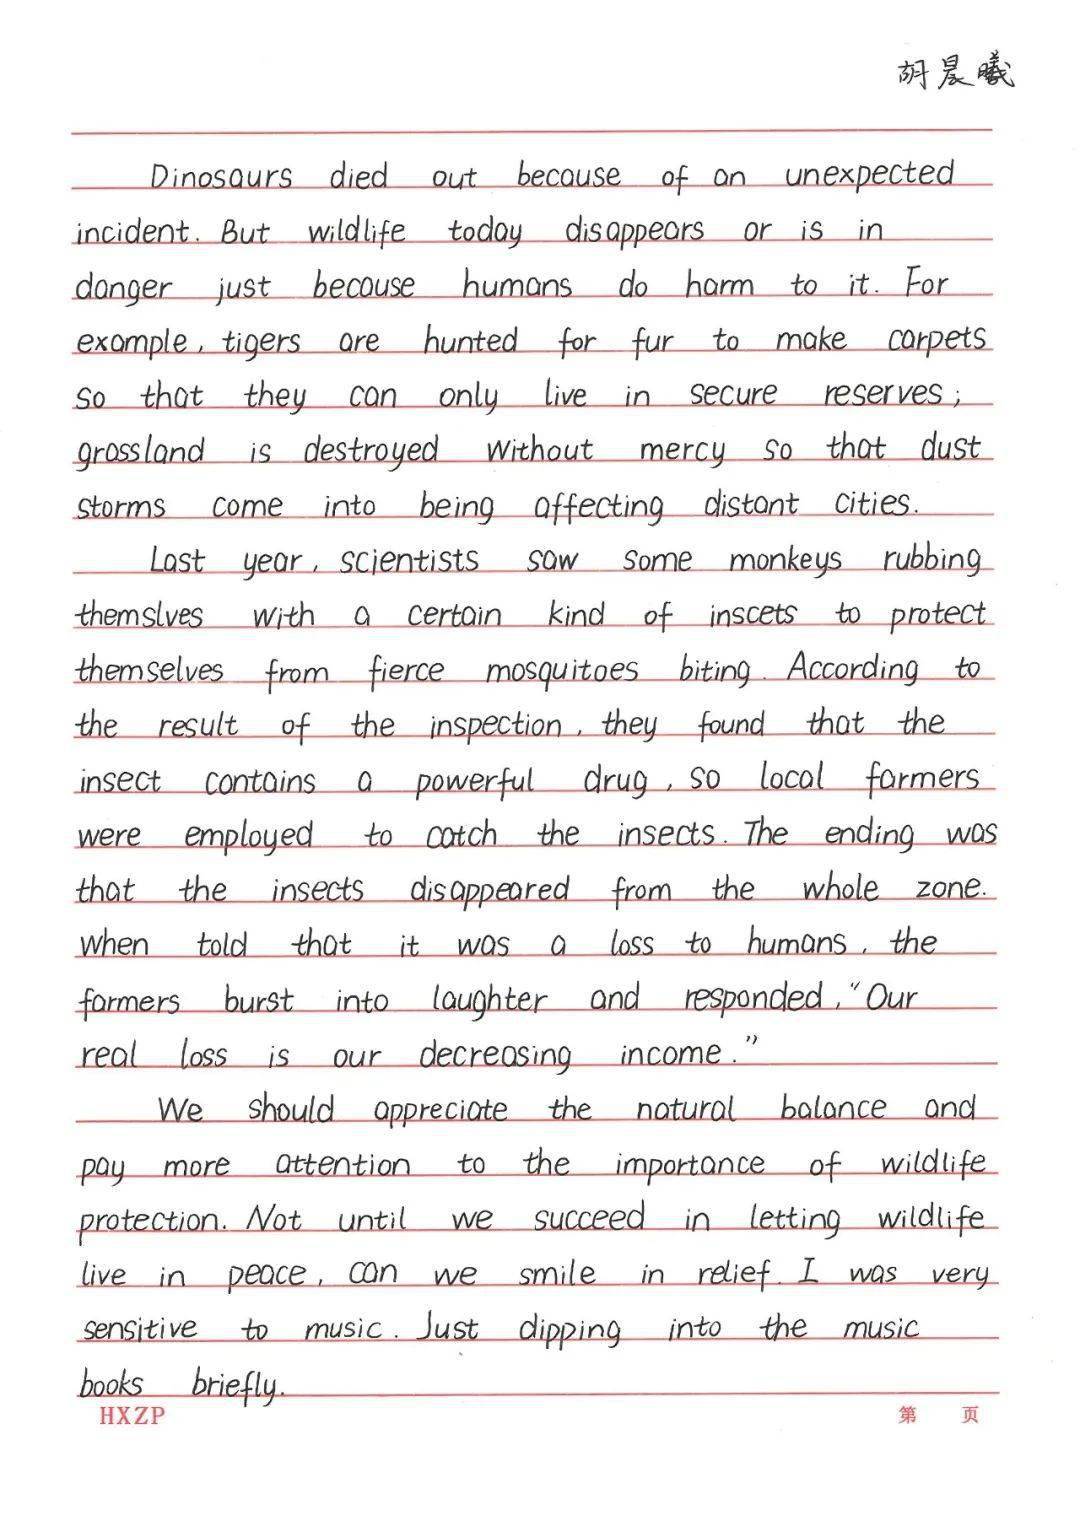 胡晨曦
Dinosaurs died out because of an unexpected
incident. But wildlife today disappears or is in
danger just because humans do harm to it. For
example, tigers are hunted for fur to make carpets
so that they can only live in secure reserves;
grassland is destroyed without mercy so that dust
storms come into being affecting distant cities.
Last year, scientists saw some monkeys rubbing
themslves with a certain kind of inscets to protect
themselves from fierce mosquitoes biting. According to
the result of the inspection, they found that the
insect contains a powerful drug, so local farmers
were employed to catch the insects. The ending was
that the insects disappeared from the whole zone.
When told that it was a loss to humans, the
farmers burst into laughter and responded, "Our
real loss is our decreasing income."
We should appreciate the natural balance and
pay more attention to the importance of wildlife
protection. Not until we succeed in letting wildlife
live in peace, can we smile in relief. I was very
sensitive to music. Just dipping into the music
books briefly.
HXZP 第 页